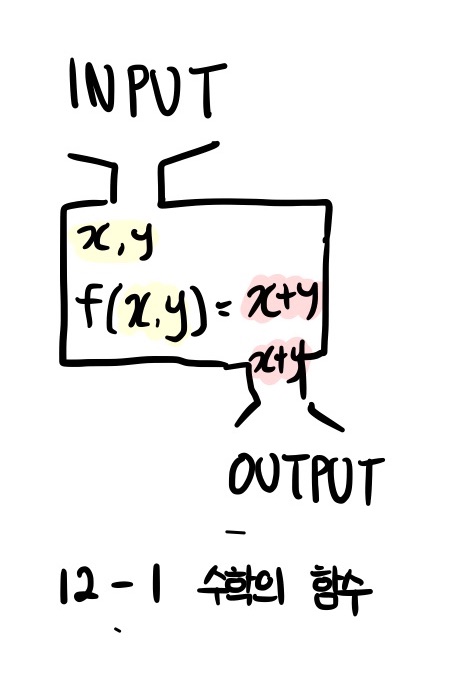 INPUT
x, y
f(x,y) = x+y
x+y
OUTPUT
12-1 수학의 함수